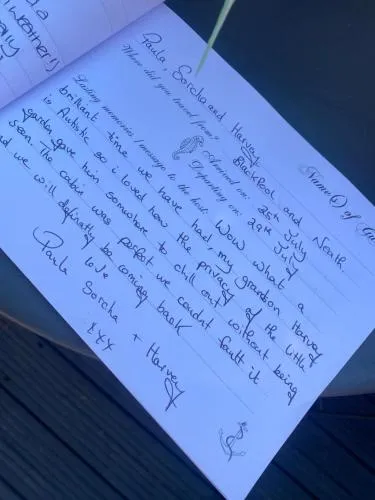 weather!)
Name(s) of Gu
Paula, Sorcha and Harvey
Where did you travel from: Blackpool and Neath.
Arrived on: 25th July
Departing on: 29th July
Lasting memories / message to the host: Wow what a
brilliant time we have had, my grandson Harvey
is Autistic so i loved how the privacy of the little
garden gave him somewhere to chill out without being
seen. The cabin was perfect we coudnt fault it
nd we will definatly be coming back
love
Paula Sorcha + Harvey
xxx